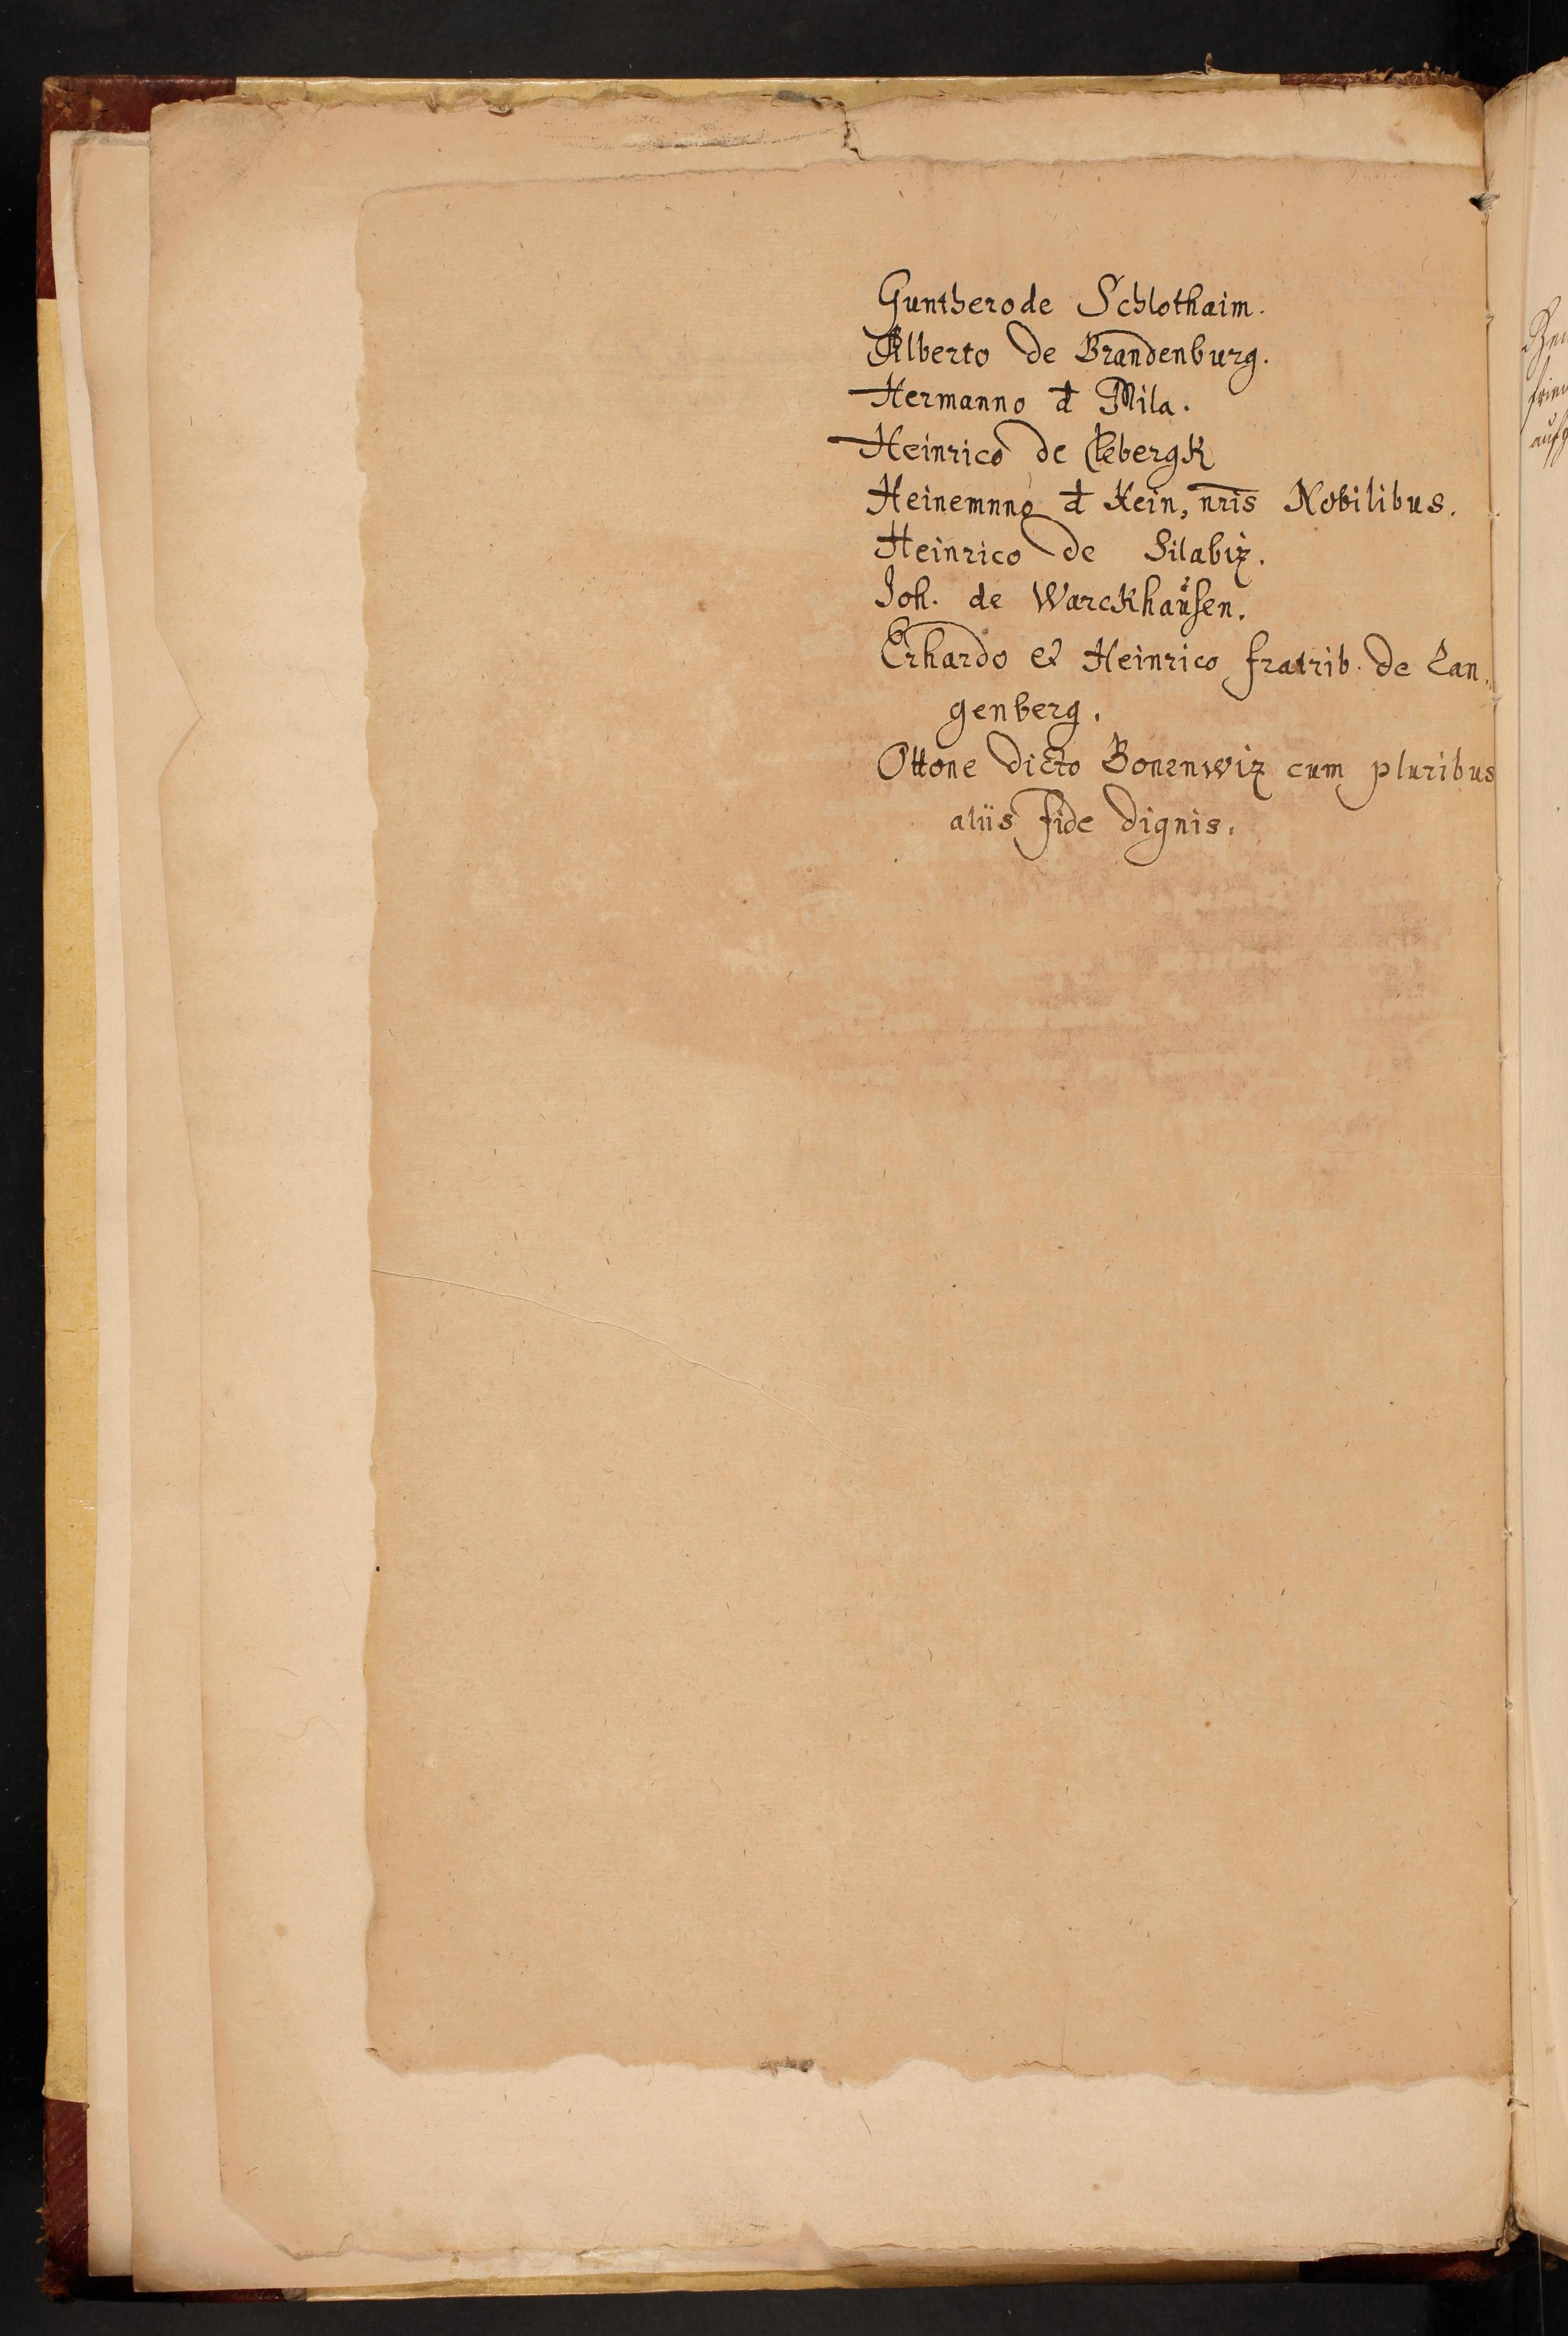 Guntherode Schlothaim.
Alberto de Brandenburg.
Hermanno đ Mila.
Heinrico de
Heinemnno đ Hein, nr̄is Nobilibus.
Heinrico de Silabiz.
Joh. de Warckhaŭsen.
Erhardo et Heinrico fratrib. de Lan,
genberg.
Ottone dicto Bonenwiz cum pluribus
aliis fide dignis.